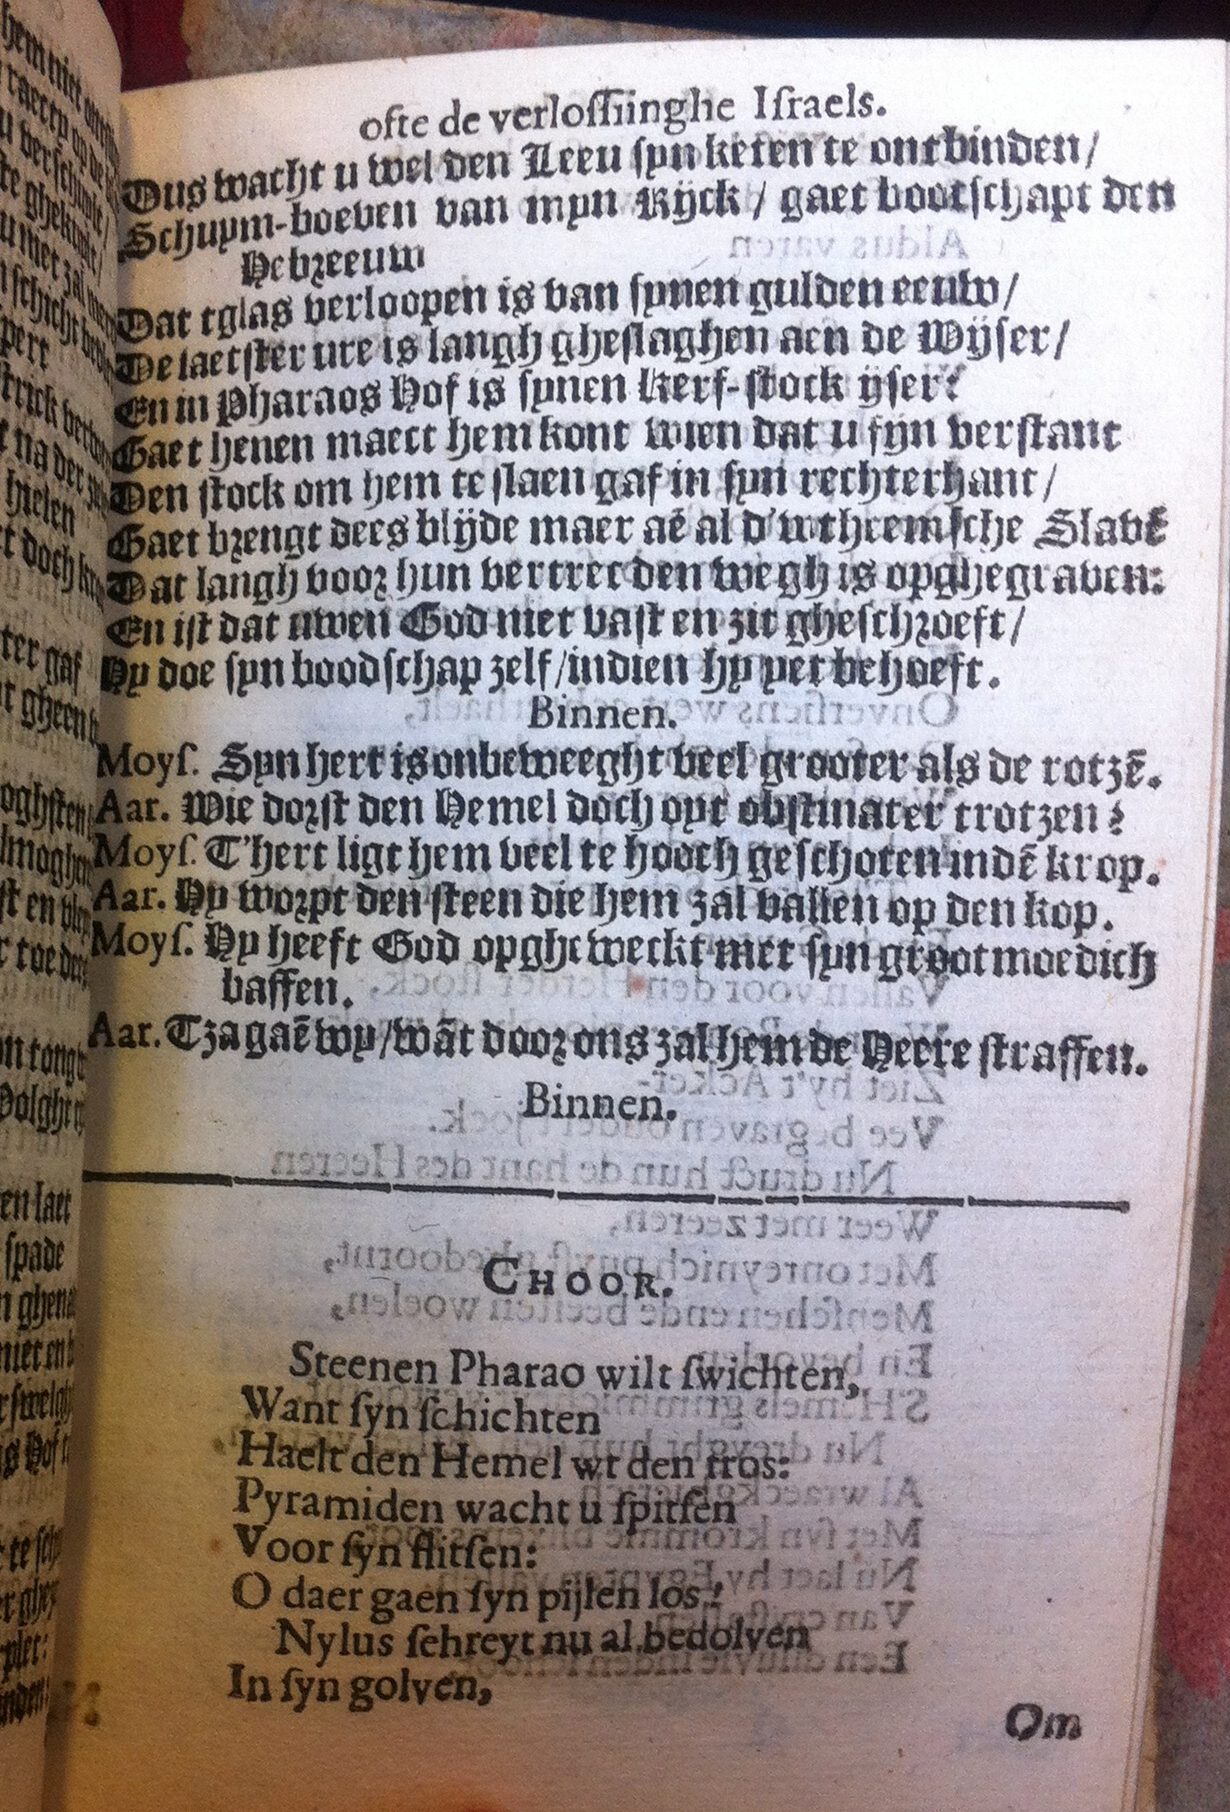 ofte de verlossinghe Israels.
Dus wacht u wel den Leeu syn keten te ontbinden/
Schuym-boeven van myn Rijck / gaet bootschapt den
Hebreeuw
Dat tglas verloopen is van synen gulden eeuw/
De laetster ure is langh gheslaghen aen de Wijser/
En in Pharaos Hof is synen kerf-stock yser:
Gaet henen maect hem kont wien dat u sijn verstant
Den stock om hem te slaen gaf in syn rechterhant/
Gaet brengt dees blijde maer aē al d'wthremsche Slavē
Dat langh voor hun vertret den wegh is opghegraven:
En ist dat uwen God niet vast en zit gheschroeft/
Hy doe syn boodschap zelf/indien hy yet behoeft.
Binnen.
Moyſ. Syn hert is onbeweeght veel grooter als de rotzē.
Aar. Wie dorst den Hemel doch oyt obstinater trotzen?
Moyſ. T'hert ligt hem veel te hooch geschoten indē krop.
Aar. Hy worpt den steen die hem zal vallen op den kop.
Moyſ. Hy heeft God opgheweckt met syn grootmoedich
baffen.
Aar. Tza gaē wy/wāt door ons zal hem de Heere straffen.
Binnen.
CHOOR.
Steenen Pharao wilt ſwichten,
Want ſyn ſchichten
Haelt den Hemel wt den tros:
Pyramiden wacht u ſpitſen
Voor ſyn flitſen:
O daer gaen ſyn pijlen los!
Nylus ſchreyt nu al bedolven
In ſyn golven,
Om